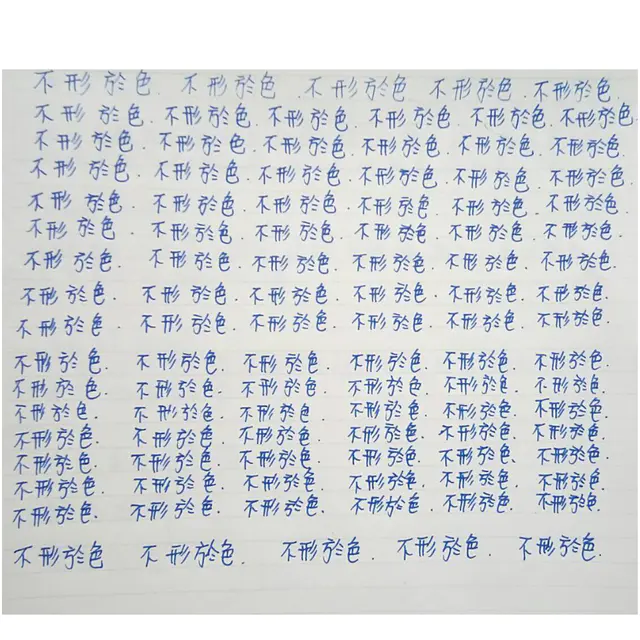 不形於色 不形於色 .不形於色 不形於色 .不形於色.
不形於色.不形於色.不形於色.不形於色.不形於色.不形於色.
不形於色.不形於色.不形於色.不形於色.不形於色.不形於色.
不形於色.不形於色.不形於色.不形於色.不形於色.不形於色.
不形於色.不形於色.不形於色.不形於色.不形於色.不形於色.
不形於色.不形於色.不形於色.不形於色.不形於色.不形於色.
不形於色.不形於色.不形於色.不形於色.不形於色.不形於色.
不形於色.不形於色.不形於色.不形於色.不形於色.不形於色.
不形於色.不形於色.不形於色.不形於色.不形於色.不形於色.
不形於色.不形於色.不形於色.不形於色.不形於色.不形於色.
不形於色.不形於色.不形於色.不形於色.不形於色.不形於色.
不形於色.不形於色.不形於色 不形於色.不形於色.不形於色.
不形於色.不形於色.不形於色.不形於色.不形於色.不形於色.
不形於色.不形於色.不形於色.不形於色.不形於色.不形於色.
不形於色.不形於色.不形於色.不形於色.不形於色.不形於色.
不形於色.不形於色.不形於色.不形於色.不形於色.不形於色.
不形於色 不形於色 . 不形於色 . 不形於色 . 不形於色.